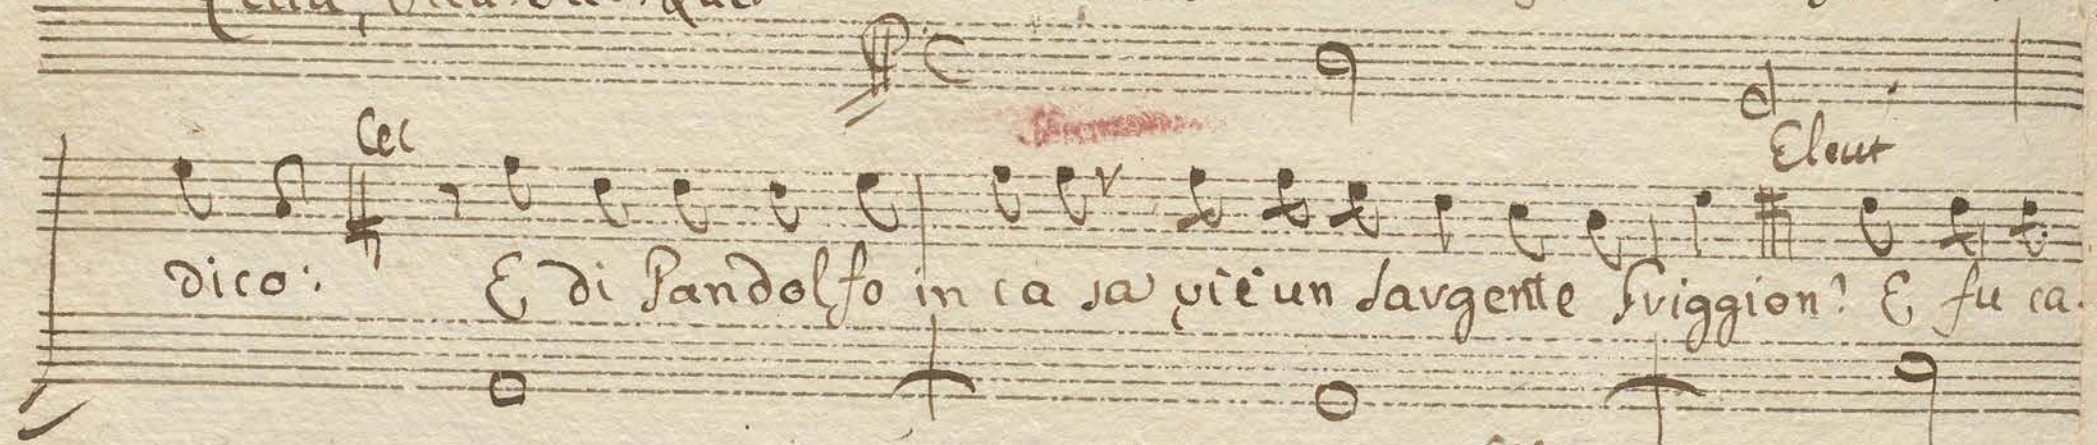 Cec
Eleut
dico: E di Pandolfo in casa vi è un Sargente Priggion? E fu ca.